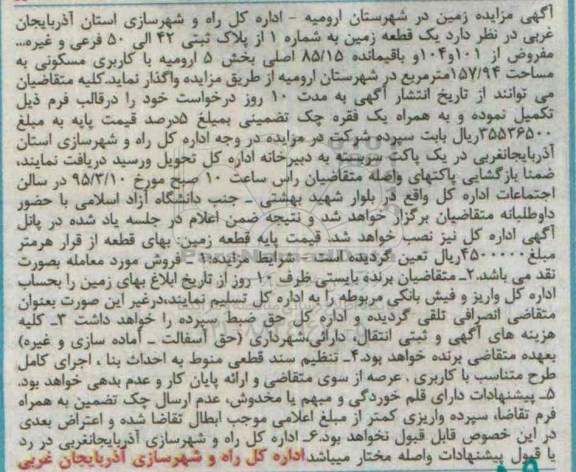 آگهی مزایده زمین در شهرستان ارومیه - اداره کل راه و شهرسازی استان آذربایجان
غربی در نظر دارد یک قطعه زمین به شماره ۱ از پلاک ثبتی ۴۲ الی ۵۰ فرعی و غیره...
مفروض از ۱۰۱و۱۰۴و باقیمانده ۸۵/۱۵ اصلی بخش ۵ ارومیه با کاربری مسکونی به
مساحت ۱۵۷/۹۴مترمربع در شهرستان ارومیه از طریق مزایده واگذار نماید.کلیه متقاضیان
می توانند از تاریخ انتشار آگهی به مدت ۱۰ روز درخواست خود را درقالب فرم ذیل
تکمیل نموده و به همراه یک فقره چک تضمینی بمبلغ ۵درصد قیمت پایه به مبلغ
۳۵۵۳۶۵۰۰ریال بابت سپرده شرکت در مزایده در وجه اداره کل راه و شهرسازی استان
آذربایجانغربی در یک پاکت سربسته به دبیرخانه اداره کل تحویل ورسید دریافت نمایند،
ضمنا بازگشایی پاکتهای واصله متقاضیان راس ساعت ۱۰ صبح مورخ ۹۵/۳/۱۰ در سالن
اجتماعات اداره کل واقع در بلوار شهید بهشتی - جنب دانشگاه آزاد اسلامی با حضور
داوطلبانه متقاضیان برگزار خواهد شد و نتیجه ضمن اعلام در جلسه یاد شده در پانل
آگهی اداره کل نیز نصب خواهد شد. قیمت پایه قطعه زمین: بهای قطعه از قرار هرمتر
مبلغ۴۵۰۰۰۰۰ریال تعین گردیده است . شرایط مزایده:۱- فروش مورد معامله بصورت
نقد می باشد.۲ـ متقاضیان برنده بایستی ظرف ۱۰ روز از تاریخ ابلاغ بهای زمین را بحساب
اداره کل واریز و فیش بانکی مربوطه را به اداره کل تسلیم نمایند،درغیر این صورت بعنوان
متقاضی انصرافی تلقی گردیده و اداره کل حق ضبط سپرده را خواهد داشت ۳ـ کلیه
هزینه های آگهی و ثبتی انتقال، دارائی،شهرداری (حق آسفالت ـ آماده سازی و غیره)
بعهده متقاضی برنده خواهد بود.۴ـ تنظیم سند قطعی منوط به احداث بنا ، اجرای کامل
طرح متناسب با کاربری ، عرصه از سوی متقاضی و ارائه پایان کار و عدم بدهی خواهد بود.
۵ـ پیشنهادات دارای قلم خوردگی و مبهم یا مخدوش، عدم ارسال چک تضمین به همراه
فرم تقاضا، سپرده واریزی کمتر از مبلغ اعلامی موجب ابطال تقاضا شده و اعتراض بعدی
در این خصوص قابل قبول نخواهد بود.۶ـ اداره کل راه و شهرسازی آذربایجانغربی در رد
یا قبول پیشنهادات واصله مختار میباشد.اداره کل راه و شهرسازی آذربایجان غربی